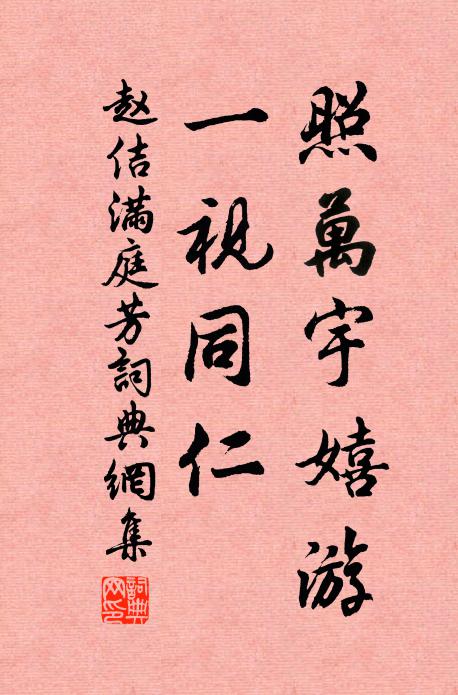 照萬宇嬉游
一視同仁
赵佶滿庭芳詞典網集
詞典網印